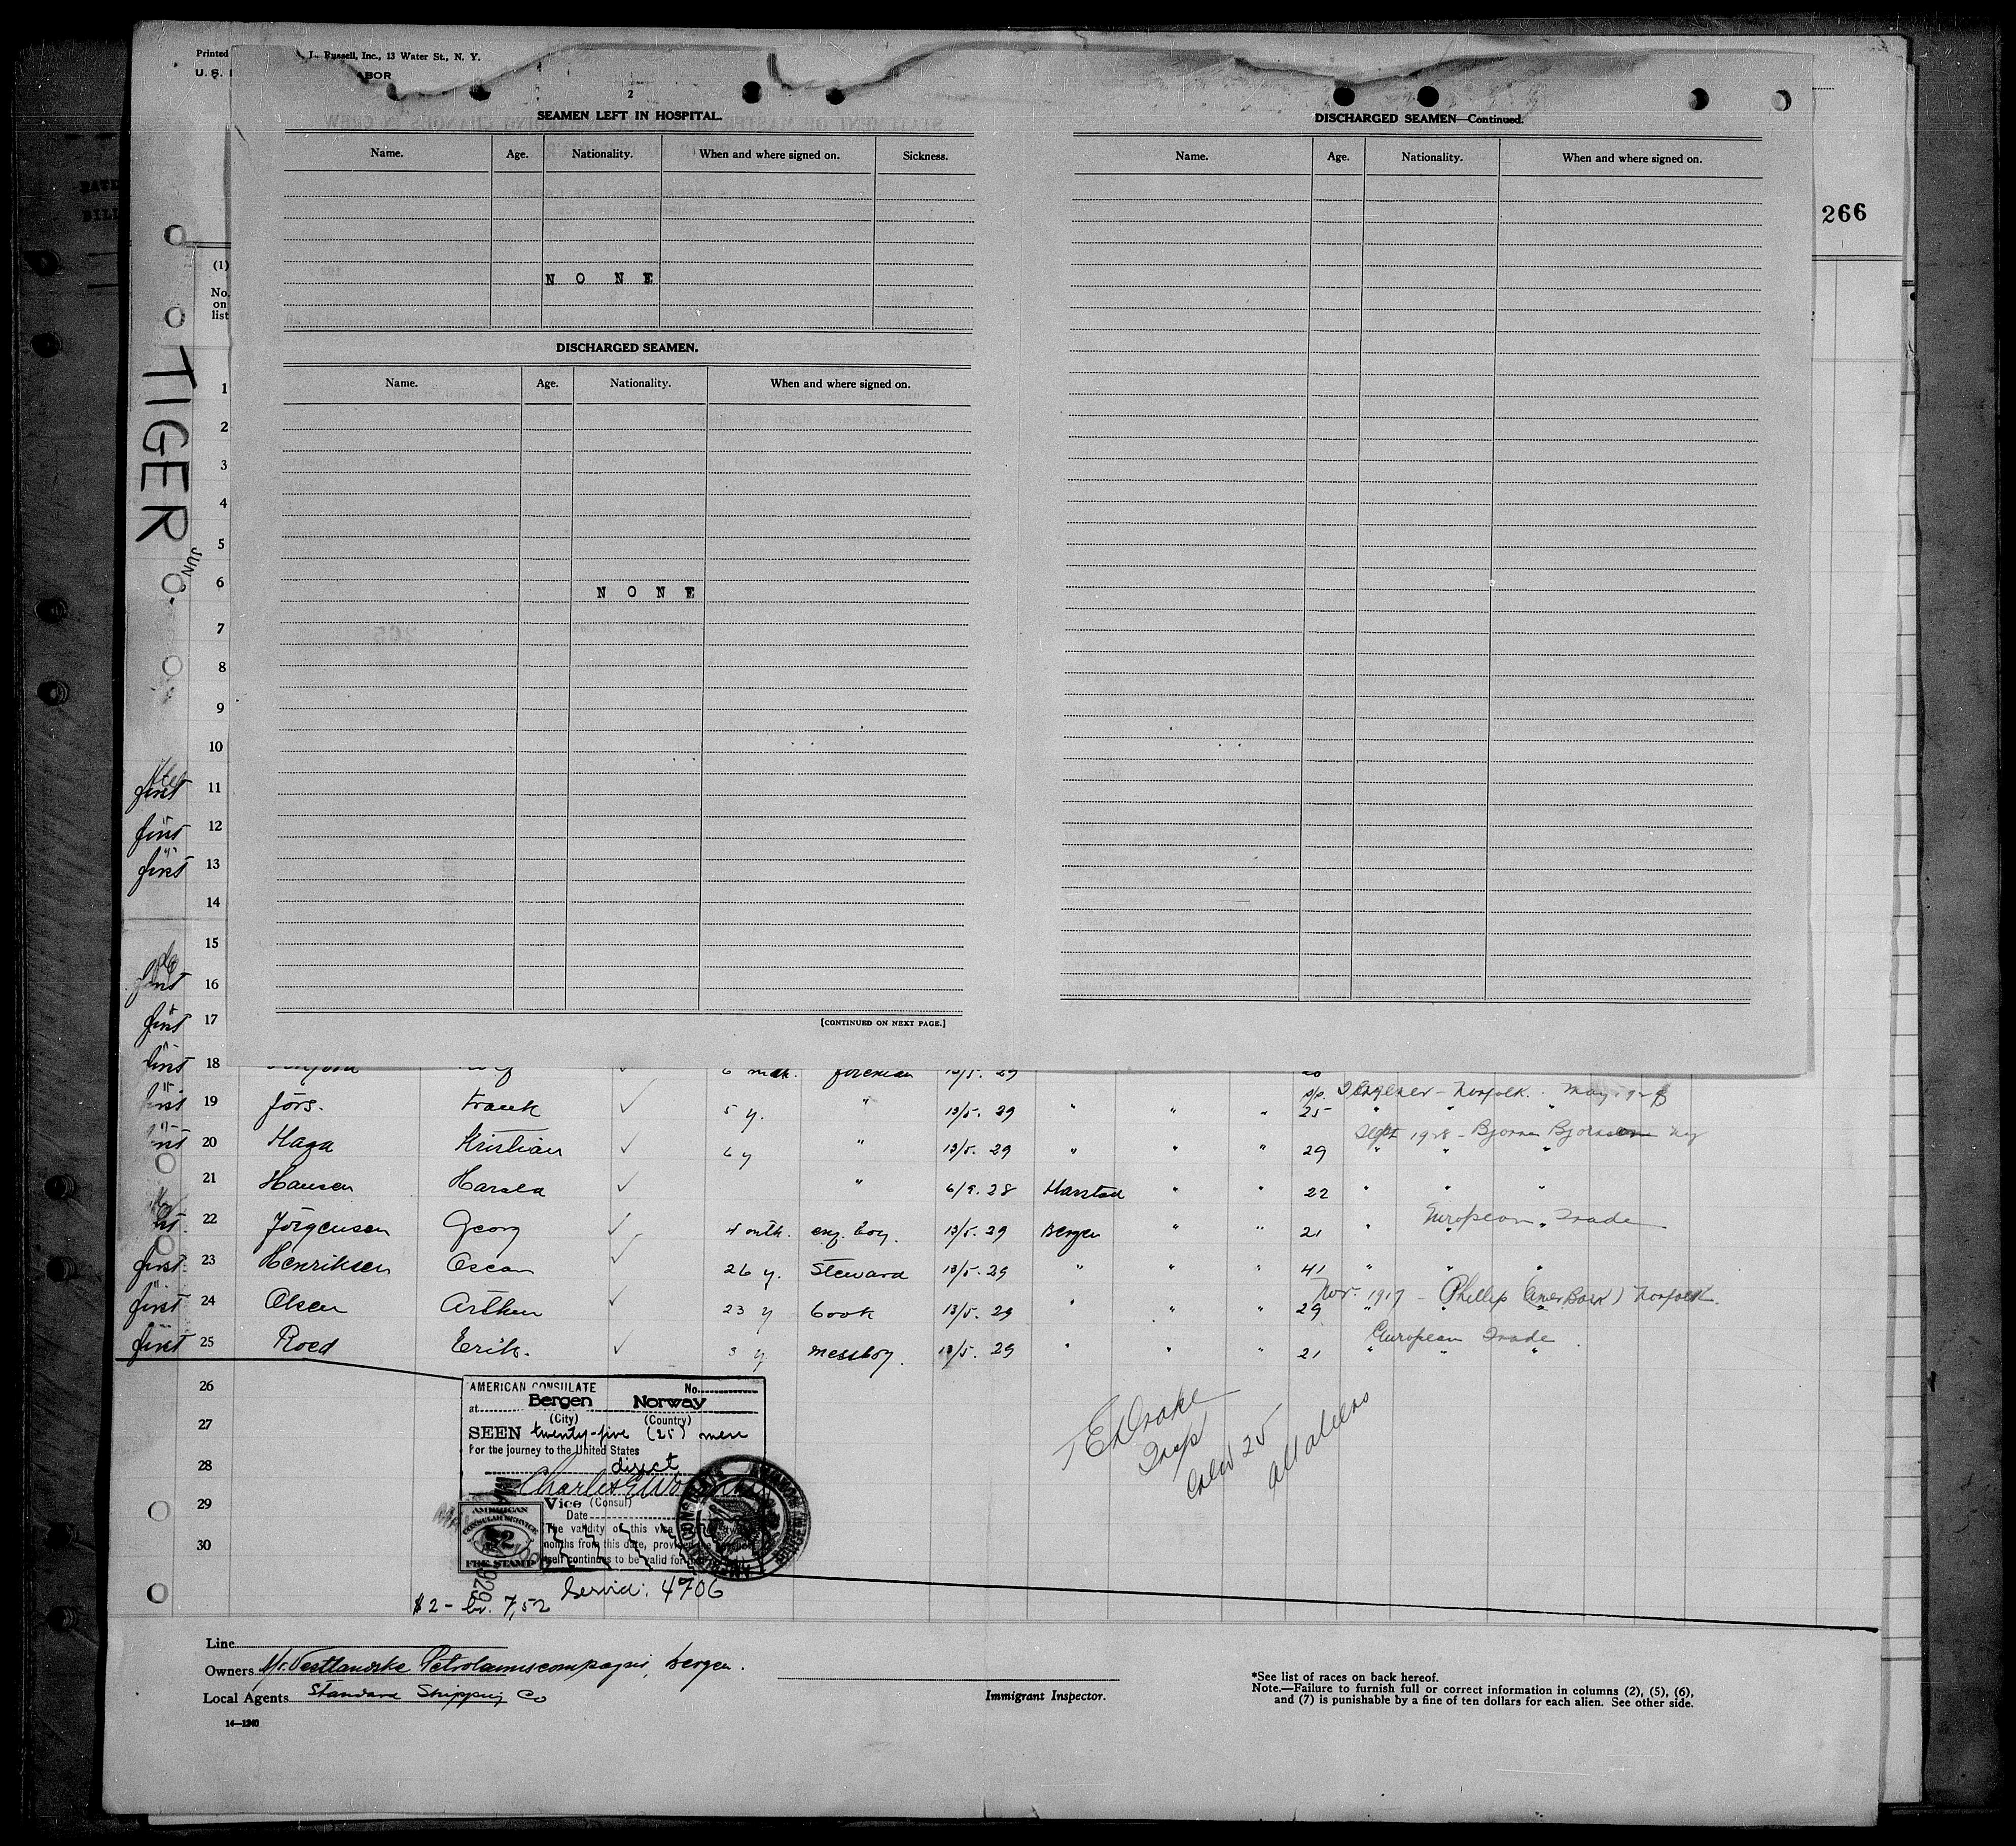 Printed
L. Russell, Inc., 13 Water St., N. Y.
U. S.
ABOR
2
SEAMEN LEFT IN HOSPITAL.
Name. Age. Nationality. When and where signed on. Sickness.
N O N E
DISCHARGED SEAMEN.
Name. Age. Nationality. When and where signed on.
N O N E
[CONTINUED ON NEXT PAGE.]
DISCHARGED SEAMEN—Continued.
Name. Age. Nationality. When and where signed on.
266
TIGER
JUN
(1)
No.
on
list
1
2
3
4
5
6
7
8
9
10
first 11
first 12
first 13
14
15
first 16
first 17
first 18 6 mth. fireman 13/5. 29
Norfolk. May
first 19 Jörs. Frank ✓ 5 y. " 13/5. 29 " " " 25 " " "
Sept 1928 - Bjornson NY
20 Haga Kristian ✓ 6 y " 13/5. 29 " " " 29 " " "
21 Hansen Harald ✓ " 6/9. 28 Harstad " " 22 " " "
European Trade
22 Jörgensen Georg ✓ 4 mth. eng. boy. 13/5. 29 Bergen " " 21 " " "
first 23 Henriksen Oscar ✓ 26 y. Steward 13/5. 29 " " " 41 " " "
Nov. 1917 - Phillip (Amer Bark) Norfolk.
first 24 Olsen Arthur ✓ 23 y Cook 13/5. 29 " " " 29 " " "
European Trade
first 25 Roed Erik. ✓ 3 y Messboy. 13/5. 29 " " " 21 " " "
26
27
28
29
30
AMERICAN CONSULATE No.
at Bergen Norway
(City) (Country)
SEEN twenty-five (25) men
For the journey to the United States
direct
Charles E.
Vice (Consul)
Date
The validity of this vice
months from this date, provided
self continues to be valid for
AMERICAN
CONSULAR SERVICE
$2
FEE STAMP
1929
Servic: 4706
$2 - kr. 7,52
T E Drake
Insp
Crew 25
all aliens
Line
Owners A/S. Vestlandske Petroleumscompagni, Bergen.
Local Agents Standard Shipping Co
14—1240
Immigrant Inspector.
*See list of races on back hereof.
Note.—Failure to furnish full or correct information in columns (2), (5), (6),
and (7) is punishable by a fine of ten dollars for each alien. See other side.